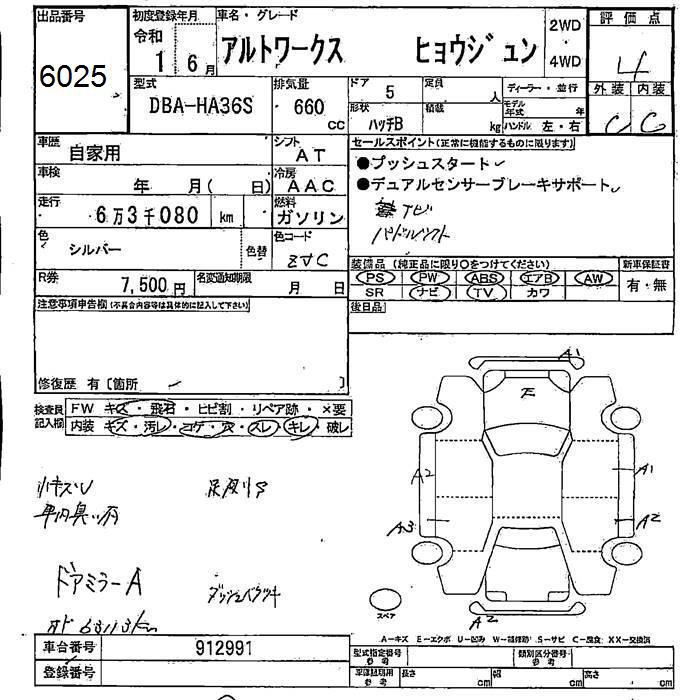 出品番号 初度登録年月 車名・グレード 2WD 評価点
6025 令和 1 6月 アルトワークス ヒョウジュン 4WD 4
型式 排気量 ドア 5 定員 人 ディーラー・並行 外装 内装
DBA-HA36S 660 CC 形状 ハッチB 積載 kg モデル年式 年 ハンドル 左・右 C C
車歴 自家用 シフト AT セールスポイント(正常に機能するものに限ります)
車検 年 月( 日) 冷房 AAC ●プッシュスタート
走行 6万3千080 km 燃料 ガソリン ●デュアルセンサーブレーキサポート
色 シルバー 色替 色コード Z7C ナビ
パドルシフト
R券 7,500円 名変通知期限 月 日 装備品(純正品に限り○をつけてください) 新車保証書
PS PW ABS エアB AW 有・無
SR ナビ TV カワ
注意事項申告欄(不具合内容等は具体的に記入して下さい) 後日品
修復歴 有〔箇所 〕
検査員記入欄 FW キズ・飛石・ヒビ割・リペア跡・×要
内装 キズ・汚レ・コゲ・穴・スレ・キレ・破レ
A1
E
A2 A1
A3 A2
A2
スペア
ドアミラーA
A-キズ E-エクボ U-凹み W-補修跡 S-サビ C-腐食 XX-交換済
車台番号 912991 型式指定番号 参考 類別区分番号 参考
登録番号 車庫証明用 参考 長さ cm 幅 cm 高さ cm